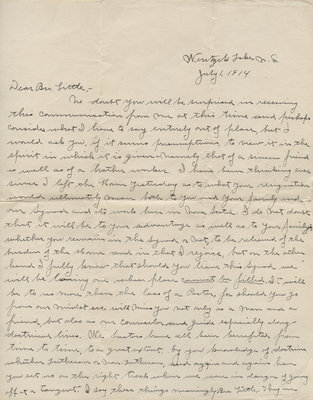 Wentzel's Lake N.S.
July 1, 1914
Dear Bro. Little,-
No doubt you will be surprised in receiving
this communication from me at this time and perhaps
consider what I have to say entirely out of place, but I
would ask you, if it seems presumptious, to view it in the
spirit in which it is given - Namely that of a sincere friend
as well as of a brother worker. I have been thinking ever
since I left the Home yesterday as to what your resignation
would ultimately mean both to you and your family and
our Synod and its work here in Nova Scotia. I do not doubt
that it will be to your advantage as well as to your family's
whether you remain in the Synod or not, to be relieved of the
burden of the Home and in that I rejoice, but on the other
hand I fully know that should you leave this Synod we
will be losing one whose place cannot be filled. It will
be to us more than the loss of a Pastor, for should you go
from our midst we will miss you not only as a man and a
friend, but also as our Counselor and guide especially along
doctrinal lines. We pastors have all been benefited from
time to time, to a great extent, by your knowledge of doctrine
whether Lutheran or Non Lutheran, and again and again have
you set us on the right track when we were in danger of going
off at a tangent. I say these things meaningly Bro. Little. They are